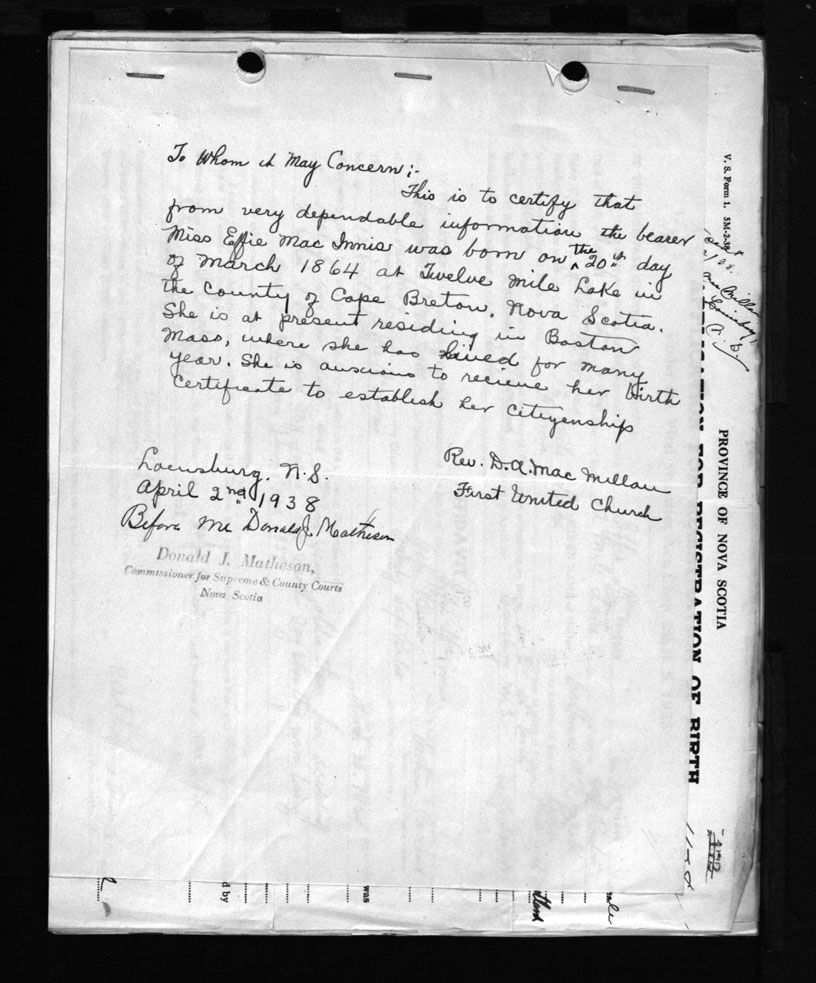 To Whom it May Concern;-
This is to certify that
from very dependable information the bearer
Miss Effie Mac Innis was born on the 20th day
of March 1864 at Twelve Mile Lake in
the County of Cape Breton, Nova Scotia.
She is at present residing in Boston
Mass, where she has lived for many
year. She is auxcious to recieve her Birth
Certificate to establish her citizenship
Rev. D.A. Mac Millan
First United Church
Louisburg, N.S.
April 2nd, 1938
Before me Donald J. Matheson
Donald J. Matheson,
Commissioner for Supreme & County Courts
Nova Scotia
V. S. Form 1.
PROVINCE OF NOVA SCOTIA
FOR REGISTRATION OF BIRTH
d by
was